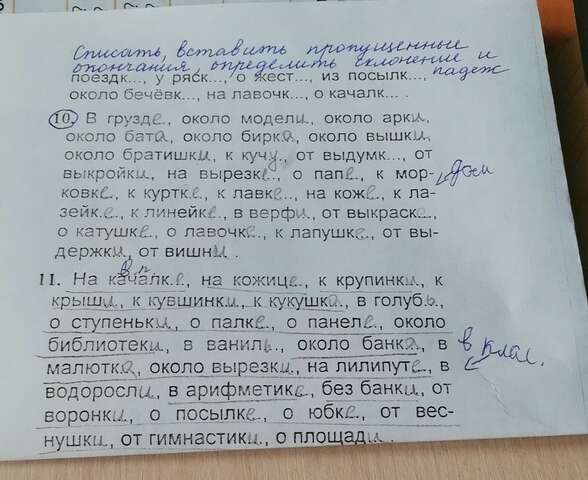 Списать, вставить пропущенные
окончания, определить склонение и
падеж
поездк..., у ряск..., о жест..., из посылк...,
около бечёвк..., на лавочк..., о качалк... .
10. В грузде, около модели, около арки,
около бата, около бирка, около вышки,
около братишки, к кучу, от выдумк..., от
выкройки, на вырезке, о папе, к мор-
дом
ковке, к куртке, к лавке, на коже, к ла-
зейке, к линейке, в верфи, от выкраске,
о катушке, о лавочке, к лапушке, от вы-
держки, от вишни.
в.п.
11. На качалке, на кожице, к крупинки, к
крыши, к кувшинки, к кукушка, в голубь,
о ступеньки, о палке, о панеле, около
библиотеки, в ваниль, около банка, в
в клас.
малютка, около вырезки, на лилипуте, в
водоросли, в арифметике, без банки, от
воронки, о посылке, о юбке, от вес-
нушки, от гимнастики, о площади.